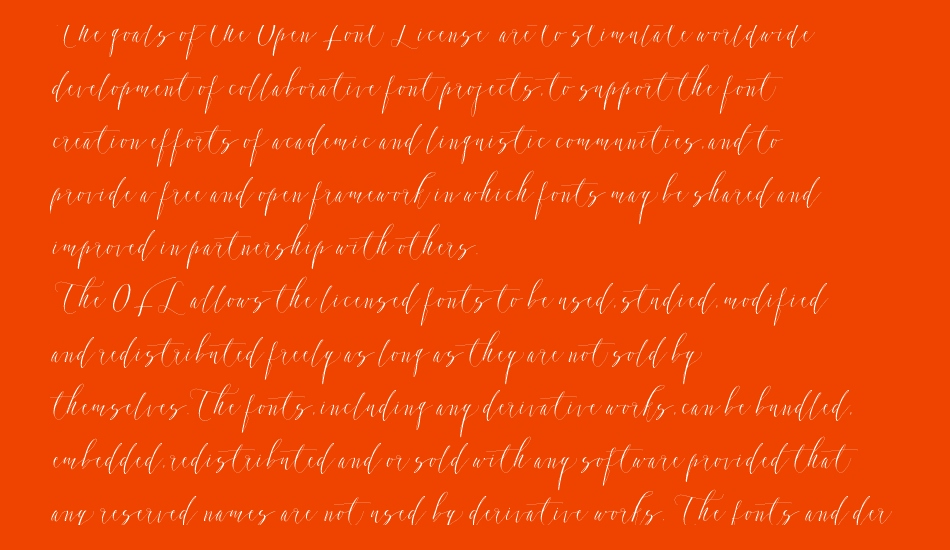 The goals of the Open Font License are to stimulate worldwide
development of collaborative font projects, to support the font
creation efforts of academic and linguistic communities, and to
provide a free and open framework in which fonts may be shared and
improved in partnership with others.
The OFL allows the licensed fonts to be used, studied, modified
and redistributed freely as long as they are not sold by
themselves. The fonts, including any derivative works, can be bundled,
embedded, redistributed and or sold with any software provided that
any reserved names are not used by derivative works. The fonts and der